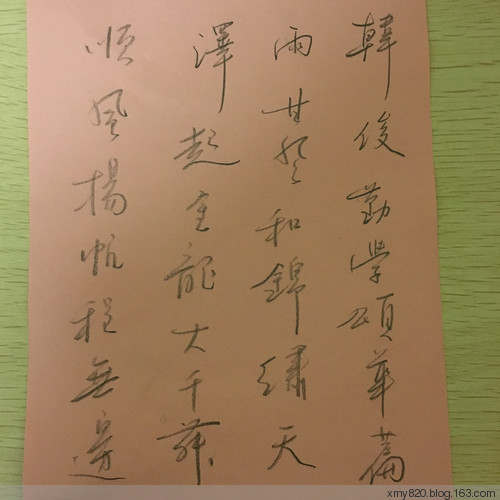 韓俊勤學頌華篇
雨甘風和錦繡天
澤起金龍大千舞
順風揚帆程無邊
xmy820.blog.163.com